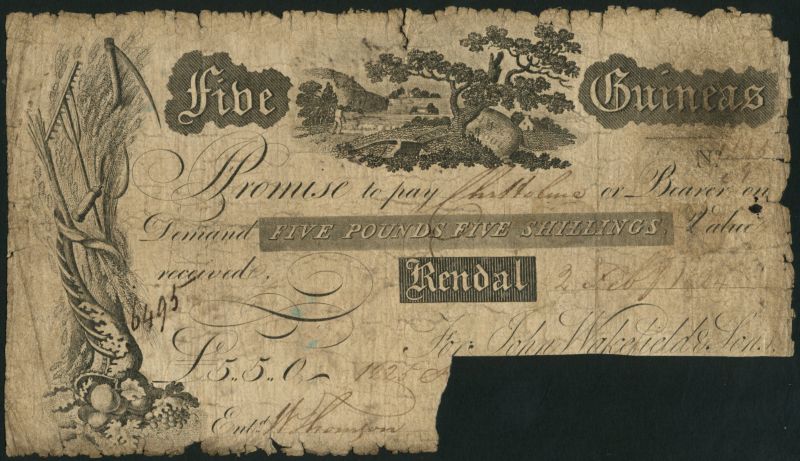 Five Guineas
No
I Promise to pay Chr Holme or Bearer on
Demand FIVE POUNDS FIVE SHILLINGS. Value
received.
Kendal 2 Feby
6495
For John Wakefield & Sons.
£5..5..0
Entd W Thomson